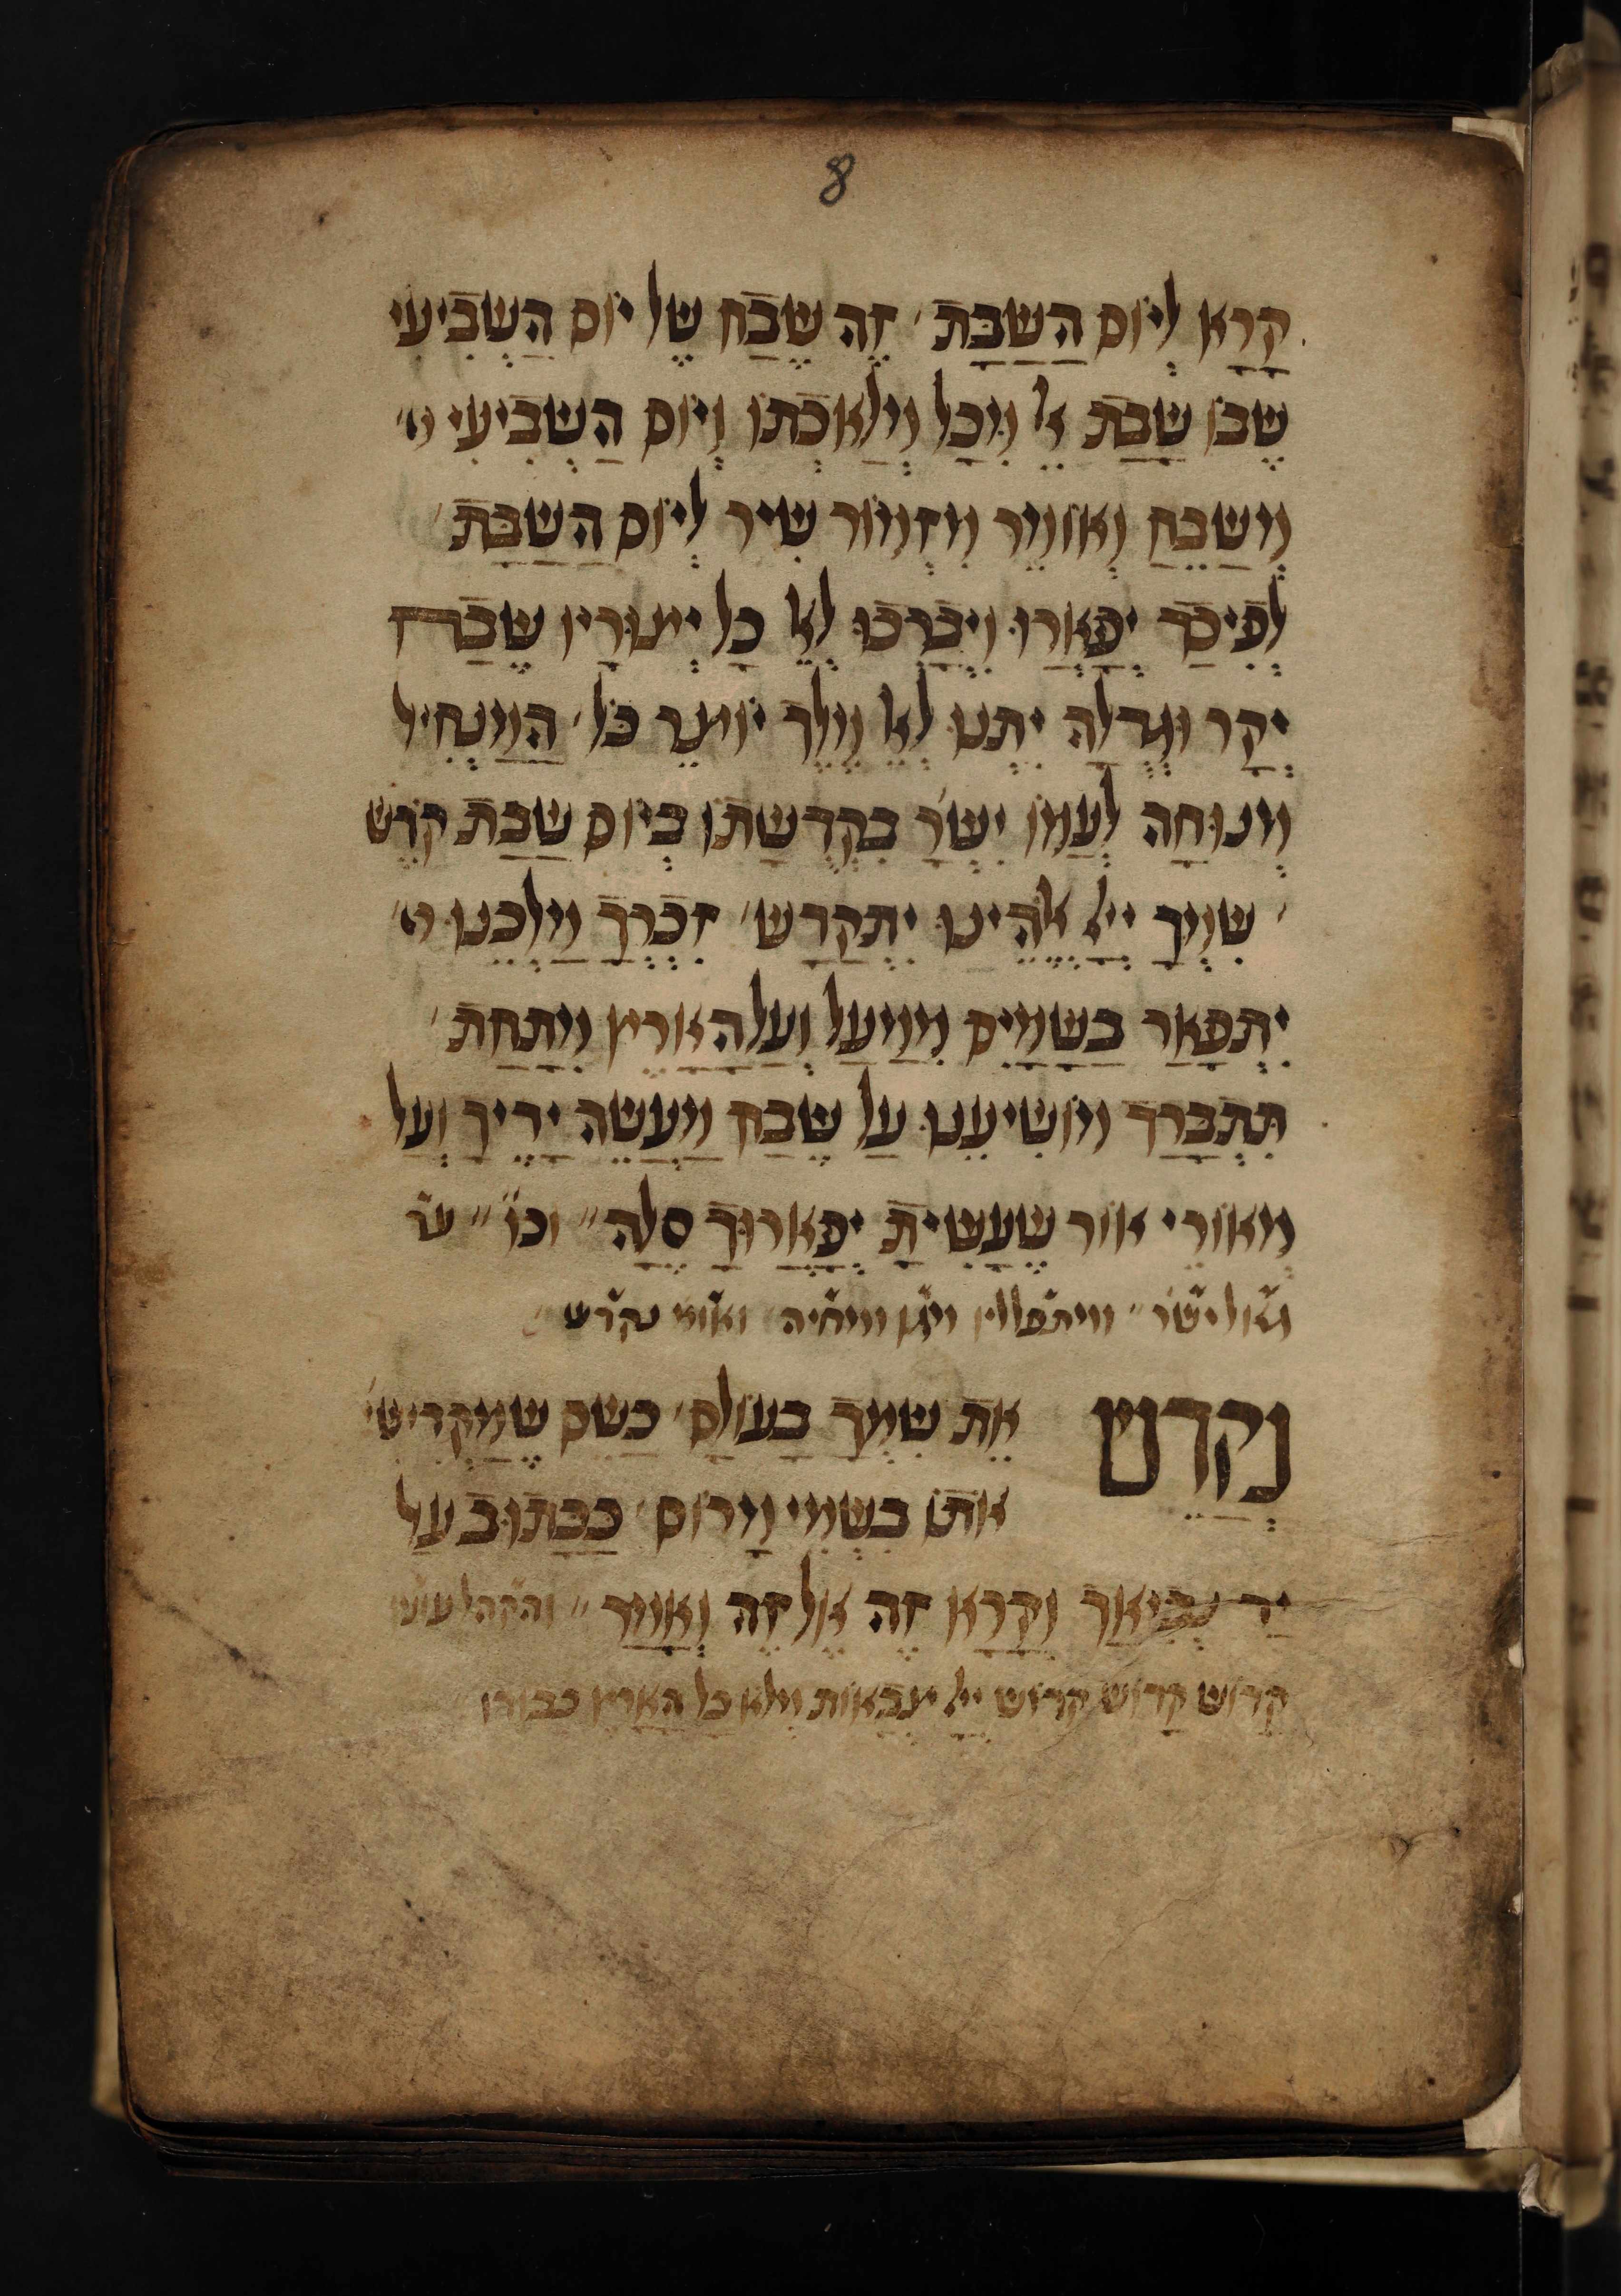 8
קָרָא לְיוֹם הַשַבָּת׳ זֶה שֶבַח שֶל יוֹם הַשְבִיעִי
שֶבוֹ שָבַת אֵל מִכָל מְלַאכְתוֹ וְיוֹם הַשְבִיעִי מ׳
מְשַבֵחַ וְאוֹמֵר מִזְמוֹר שִיר לְיוֹם הַשַבָּת׳
לְפִיכַך יְפָאֲרוּ וִיבָרְכוּ לָאֵל כָל יְצוּרָיו שֶבַח
יְקָר וּגְדֻלָה יִתְנוּ לָאֵל מֶלֶך יוֹצֵר כֹל׳ הַמַנְחִיל
מְנוּחָה לְעַמוֹ יִשְרָ׳ בִקְדֻשָתוֹ בְיוֹם שַבַת קוֹדֶש
שִמְךָ ייָי אֱלֹהֵינוּ יִתְקַדָש׳ זִכְרְךָ מַלְכֵנוּ ה׳
יִתְפָאַר בַשָמַיִם מִמַעַל וְעַל הָאָרֶץ מִתָחַת׳
תִתְבָרַך מוֹשִיעֵנוּ עַל שֶבַח מַעֲשֵה יָדֶיךָ וְעַל
מְאוֹרֵי אוֹר שֶעָשִיתָ יְפָאֲרוּךָ סֶלָה״ וכו׳ ״ עד
גאל ישר׳ ״ ומתפללין מגן ומחיה ואומ׳ נקדש
נְקַדֵש אֶת שִמְךָ בָעוֹלָם׳ כְשֵם שֶמַקְדִישִי׳
אוֹתוֹ בִשְמֵי מָרוֹם׳ כַכָתוּב עַל
יַד נְבִיאָך וְקָרָא זֶה אֶל זֶה וְאָמַר״ והקהל עונין
קָדוֹש קָדוֹש קָדוֹש ייָי צְבָאוֹת מְלֹא כָל הָאָרֶץ כבודו